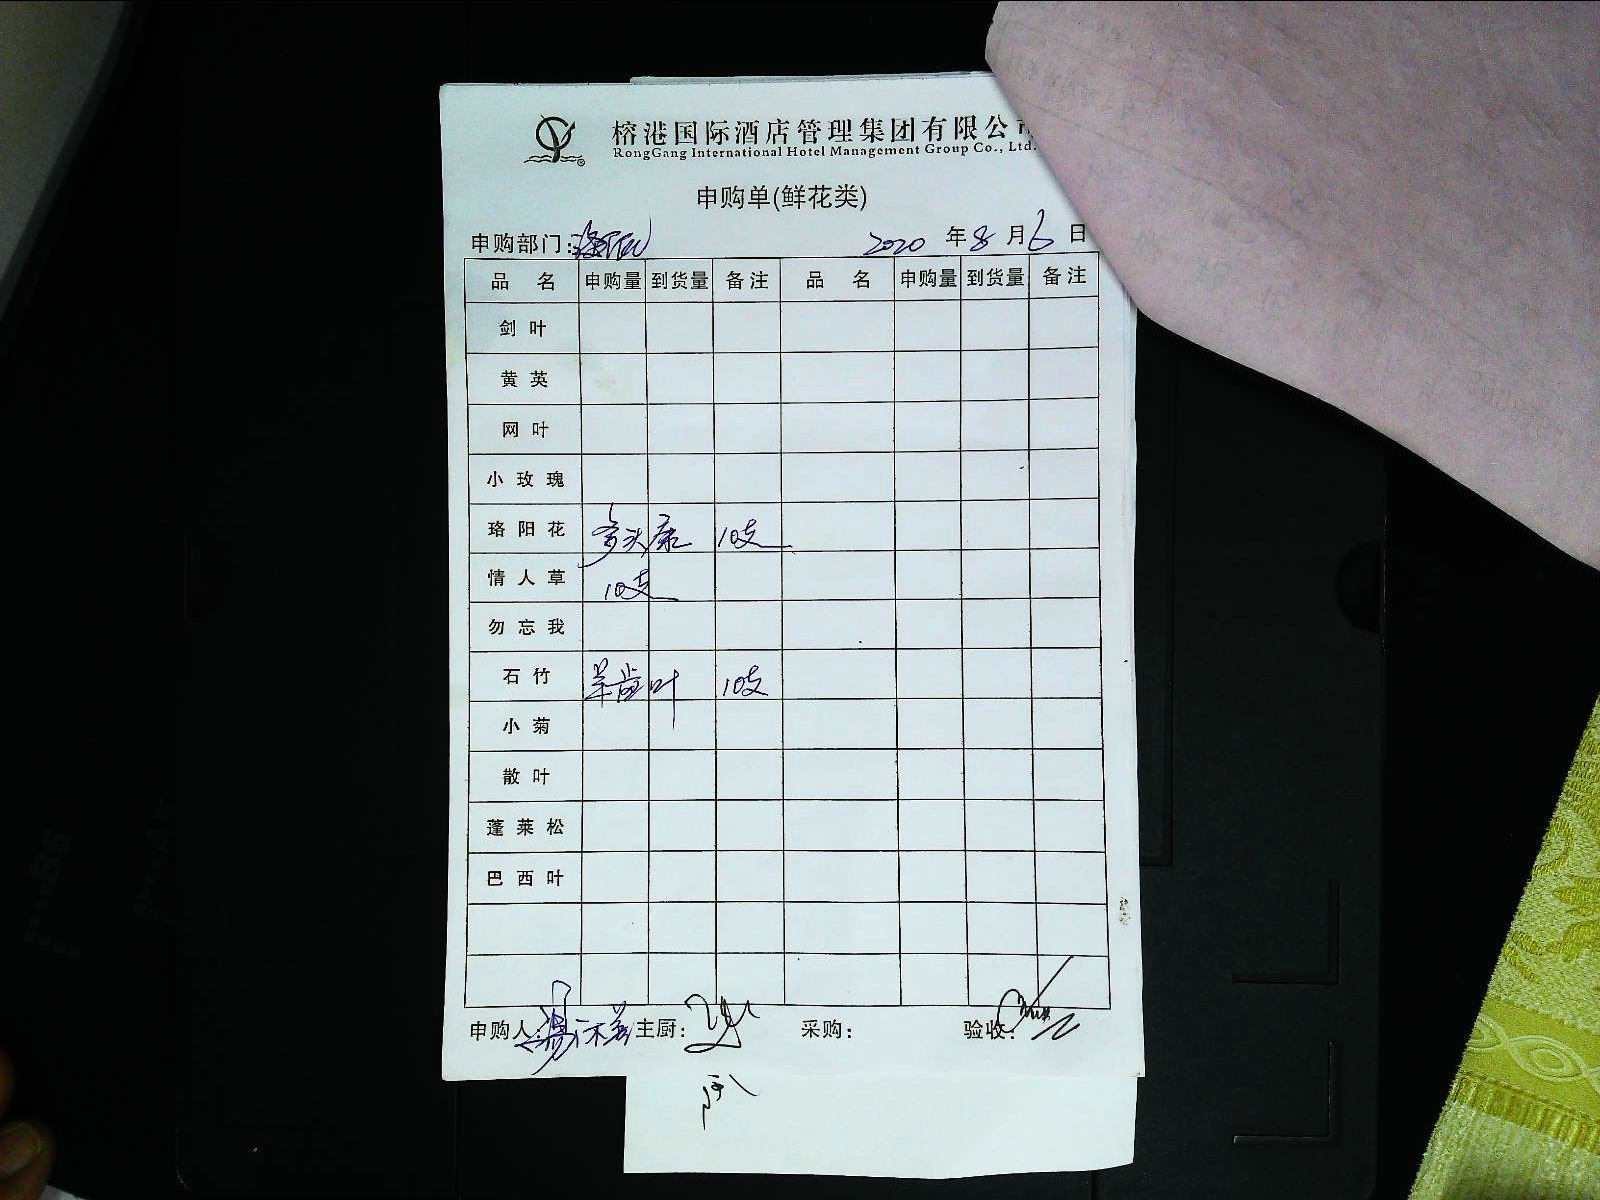 榕港国际酒店管理集团有限公司
RongGang International Hotel Management Group Co., Ltd.
申购单(鲜花类)
申购部门: 2020 年 8 月 6 日
品 名 申购量 到货量 备注 品 名 申购量 到货量 备注
剑叶
黄英
网叶
小玫瑰
珞阳花 多头康 10支
情人草 10支
勿忘我
石竹 羊齿叶 10支
小菊
散叶
蓬莱松
巴西叶
申购人: 主厨: 采购: 验收: